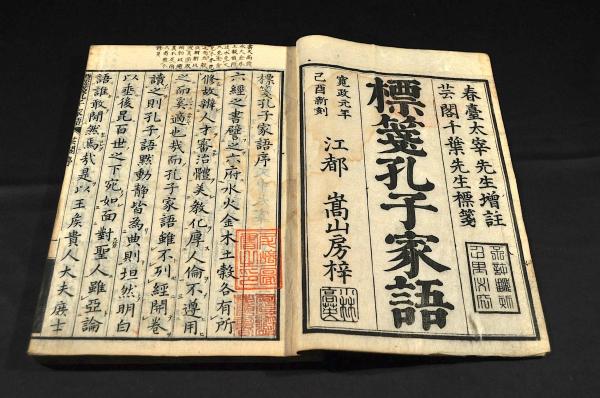 春臺太宰先生增註
芸閣千葉先生標箋
標箋孔子家語
寬政元年
己酉新刻
江都 嵩山房梓
標箋孔子家語序
六經之書譬之六府水火金木土穀各有所
修故辨人才審治體美教化厚人倫不遵用
之而奚適也哉而孔子家語雖不列經開卷
讀之則孔子語默動靜皆為典則坦然明白
以垂後昆百世之下宛如面對聖人雖亞論
語誰敢間然焉哉是以王矦貴人大夫庶士